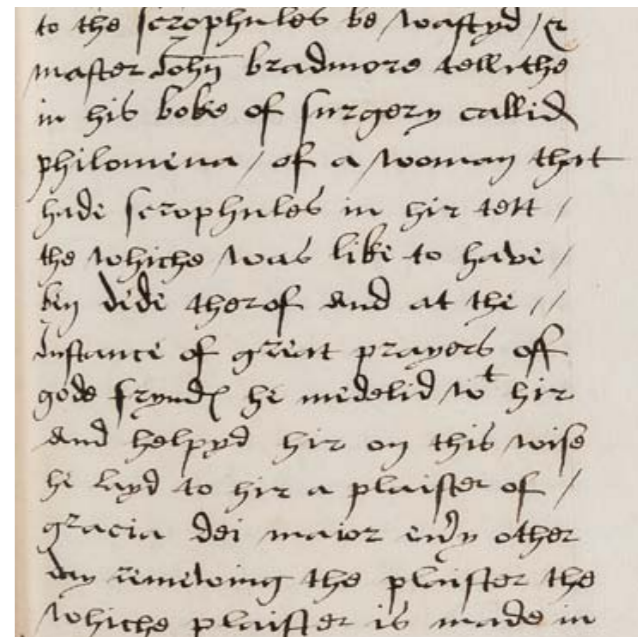 to the scrophules be wastyd / &
master John bradmore tellithe
in his boke of surgery callid
philomena / of a woman that
hade scrophules in hir tett /
the whiche was like to have /
ben dede therof and at the //
instance of great prayers off
gode frynd he medelid wt hir
and helpyd hir on this wise
he layd to hir a plaister of /
gracia dei maior eu'y other
day remewing the plaister the
whiche plaister is made in